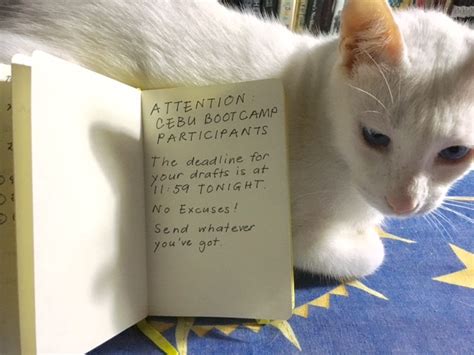 ATTENTION:
CEBU BOOTCAMP
PARTICIPANTS
The deadline for
your drafts is at
11:59 TONIGHT.
No Excuses!
Send whatever
you've got.